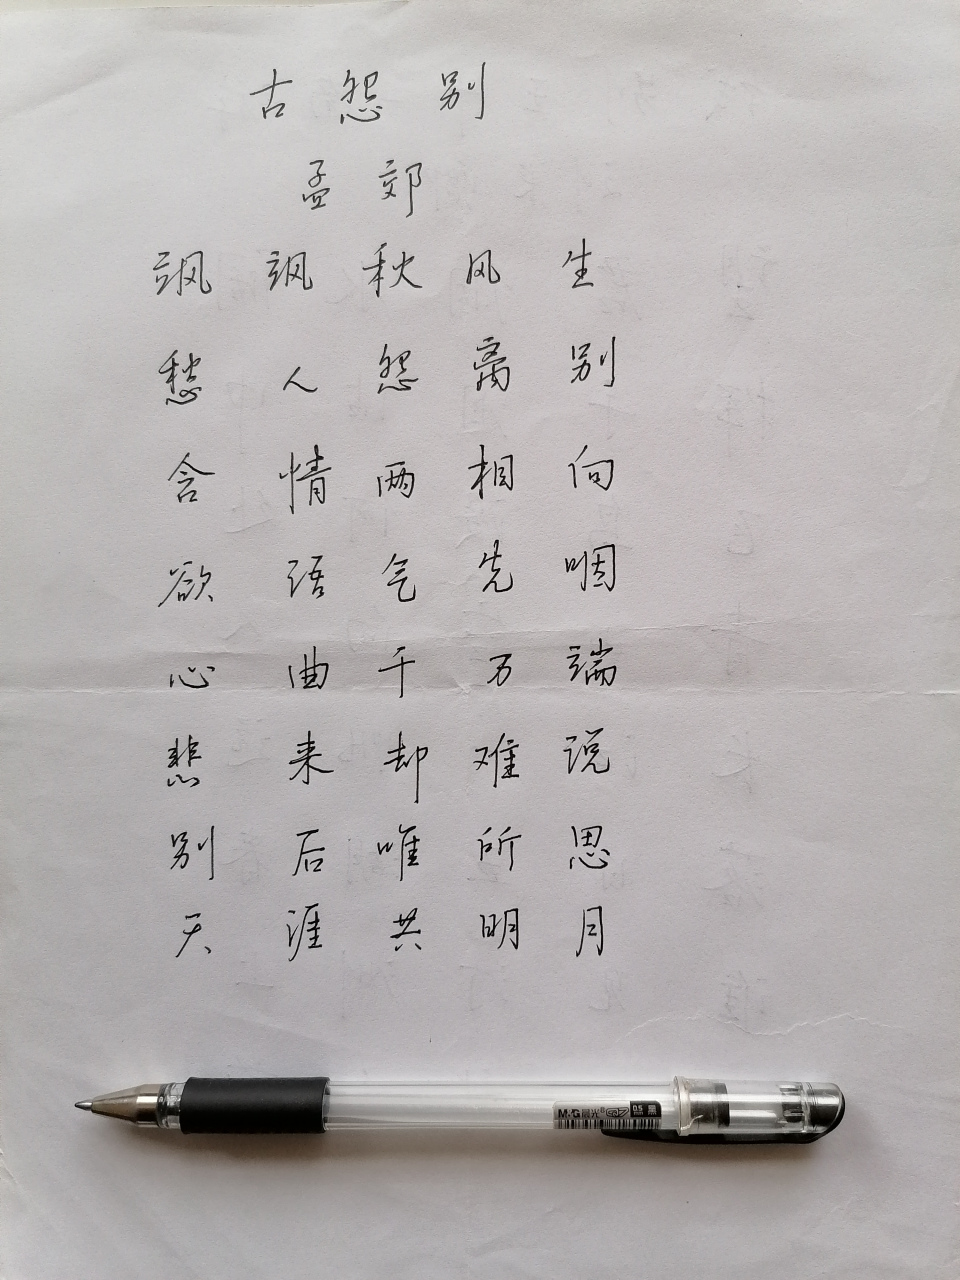 古怨别
孟郊
飒飒秋风生
愁人怨离别
含情两相向
欲语气先咽
心曲千万端
悲来却难说
别后唯所思
天涯共明月
M&G晨光® Q7 0.5 黑